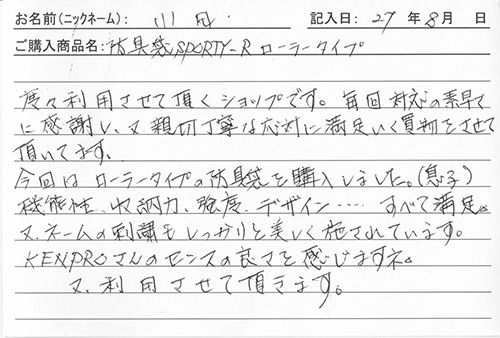 お名前(ニックネーム): 記入日: 27 年 8 月 日
ご購入商品名: 防具袋SPORTY-R ローラータイプ
度々利用させて頂くショップです。毎回対応の素早さ
に感謝し、又親切丁寧な応対に満足いく買物をさせて
頂いてます。
今回はローラータイプの防具袋を購入しました。(息子)
機能性、収納力、強度、デザイン‥‥ すべて満足。
又、ネームの刺繍もしっかりと美しく施されています。
KENPROさんのセンスの良さを感じますネ。
又、利用させて頂きます。